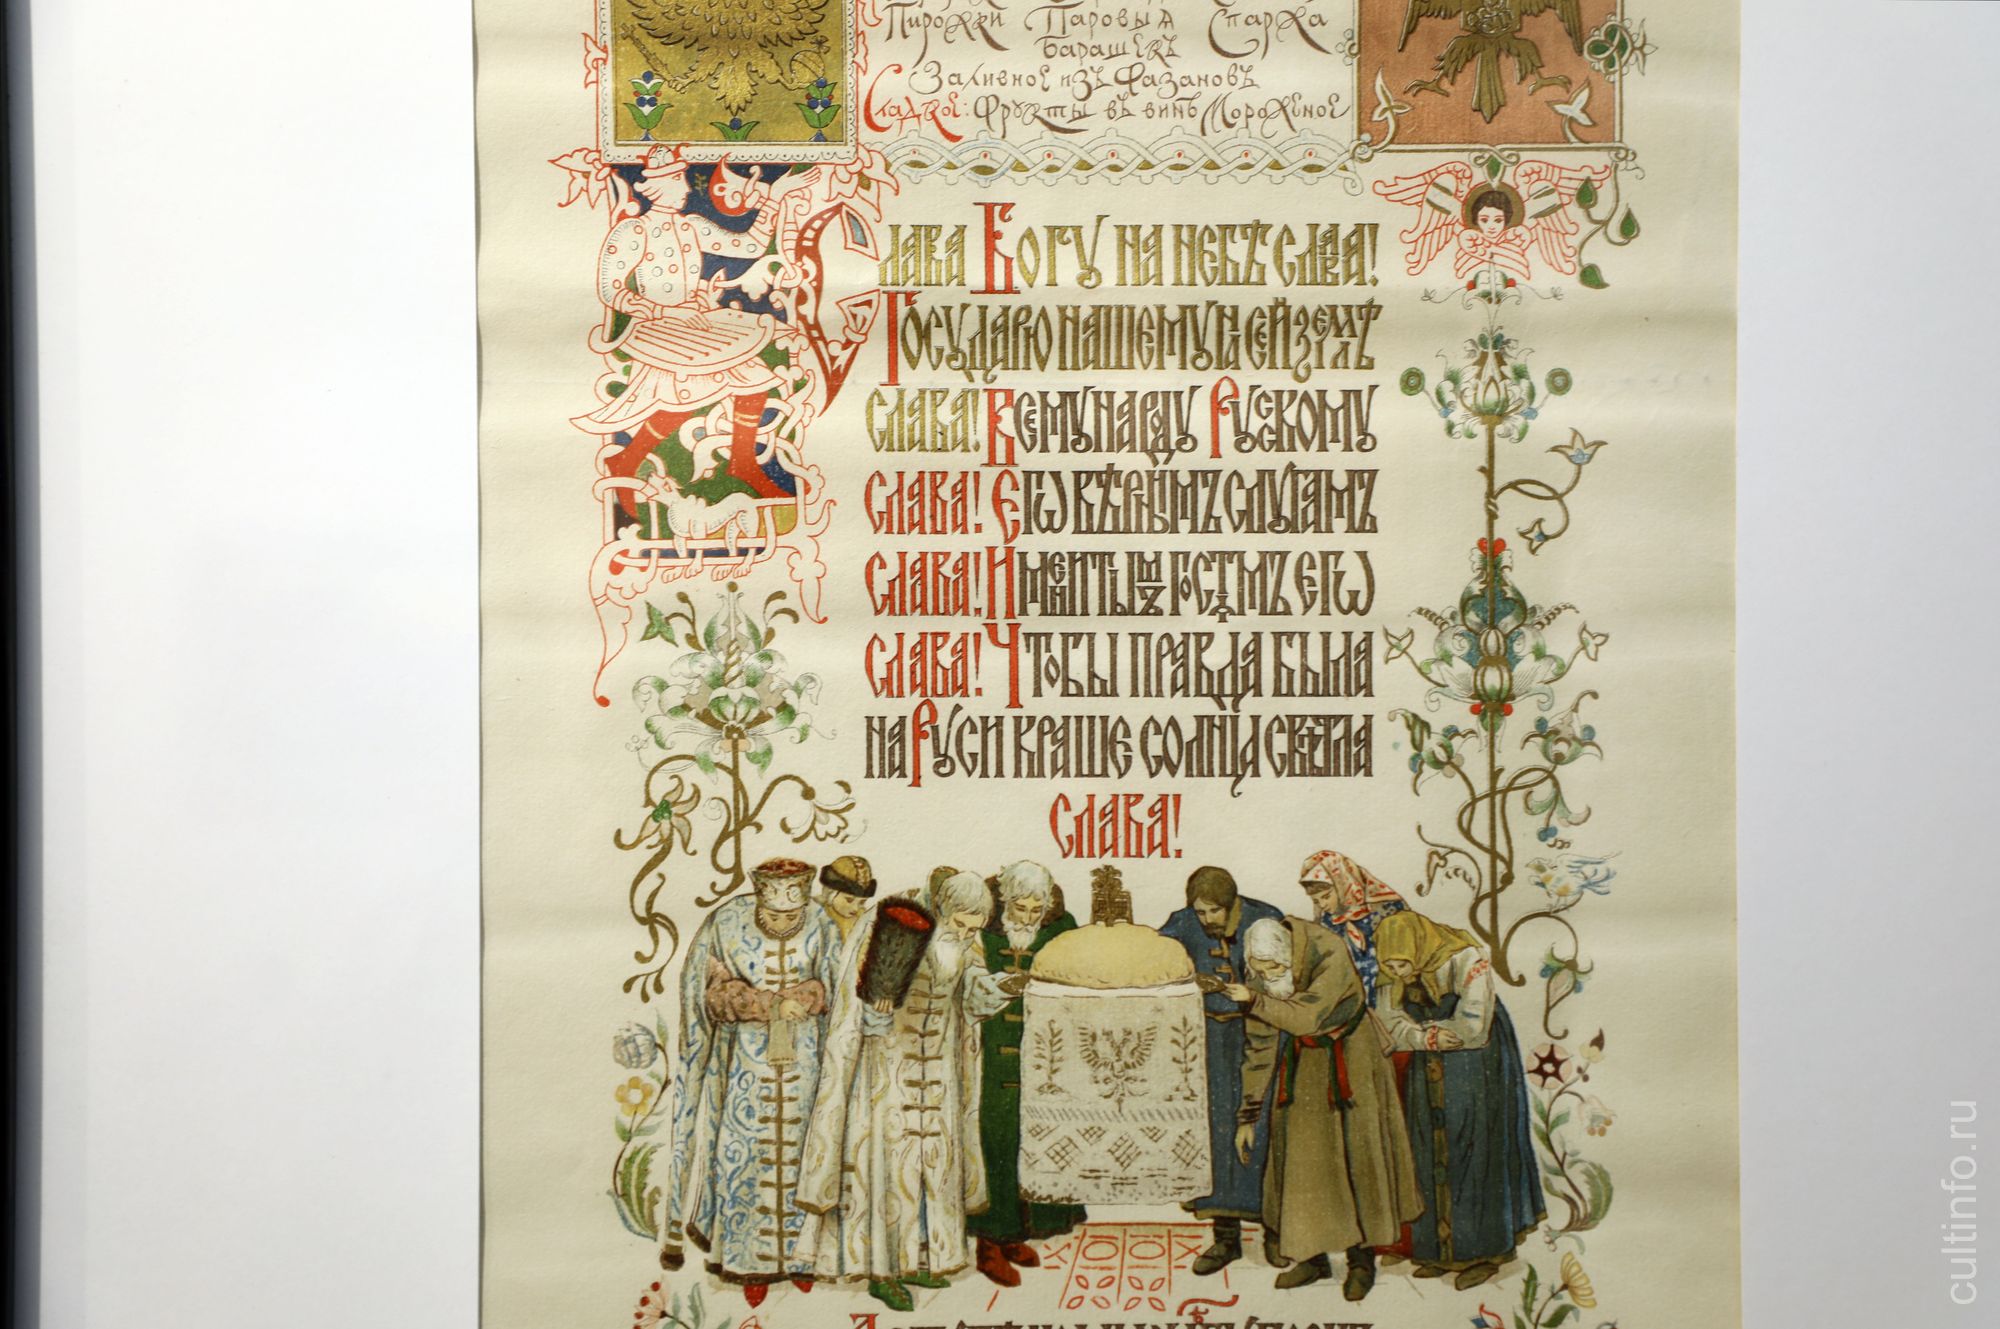 Пирожки Паровыя Спаржа
Барашекъ
Заливное изъ Фазановъ
Сладкое: Фрукты въ винѣ Мороженое
Слава Богу на небѣ слава!
Государю нашему на сей землѣ
слава! Всему народу Русскому
слава! Егѡ вѣрнымъ слугамъ
слава! Именитымъ гостѧмъ егѡ
слава! Чтобы правда была
на Руси краше солнца свѣтла
слава!
cultinfo.ru